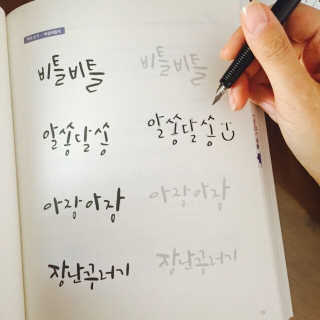 비틀비틀 비틀비틀
알쏭달쏭 알쏭달쏭
아장아장 아장아장
장난꾸러기 장난꾸러기